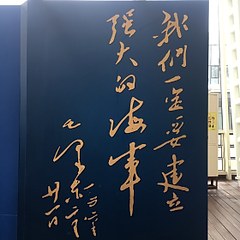 我們一定要建立
強大的海軍
毛澤東
廿一日